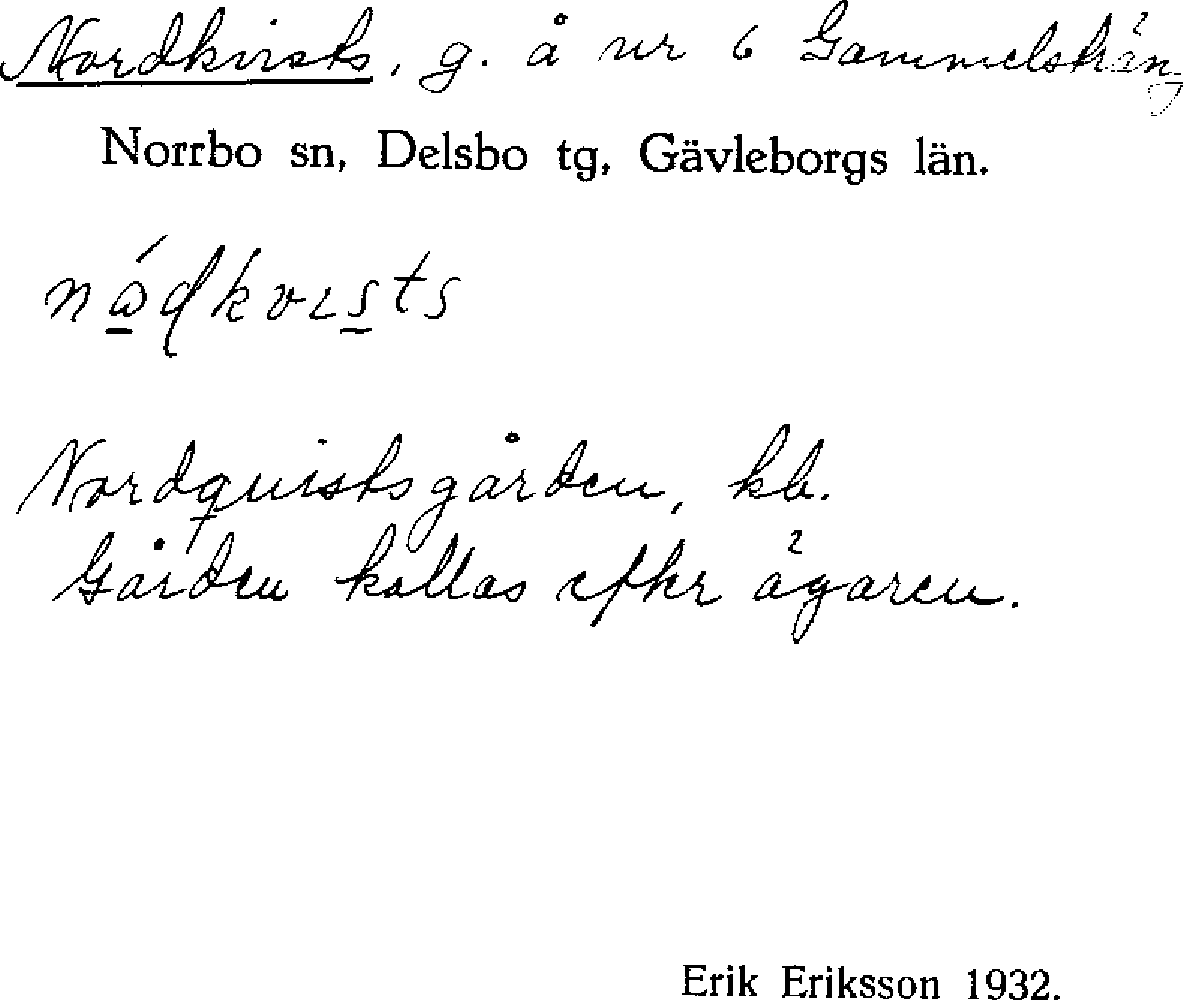 Nordkvists, g. å nr 6 Gammelsträng
Norrbo sn, Delsbo tg, Gävleborgs län.
nώdkvɪsts
Nordquistsgården, kb.
Gården kallas efter ägaren.
Erik Eriksson 1932.